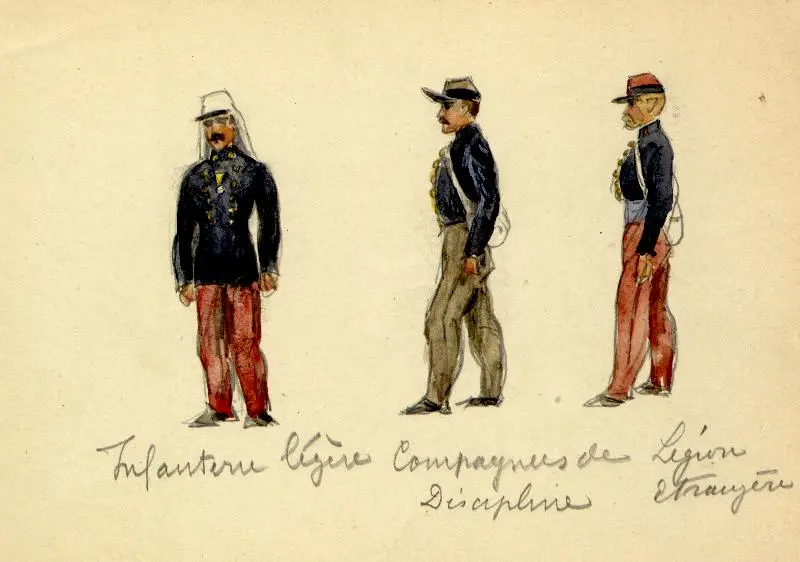 Infanterie légère
Compagnies de
Discipline
Légion
Etrangère